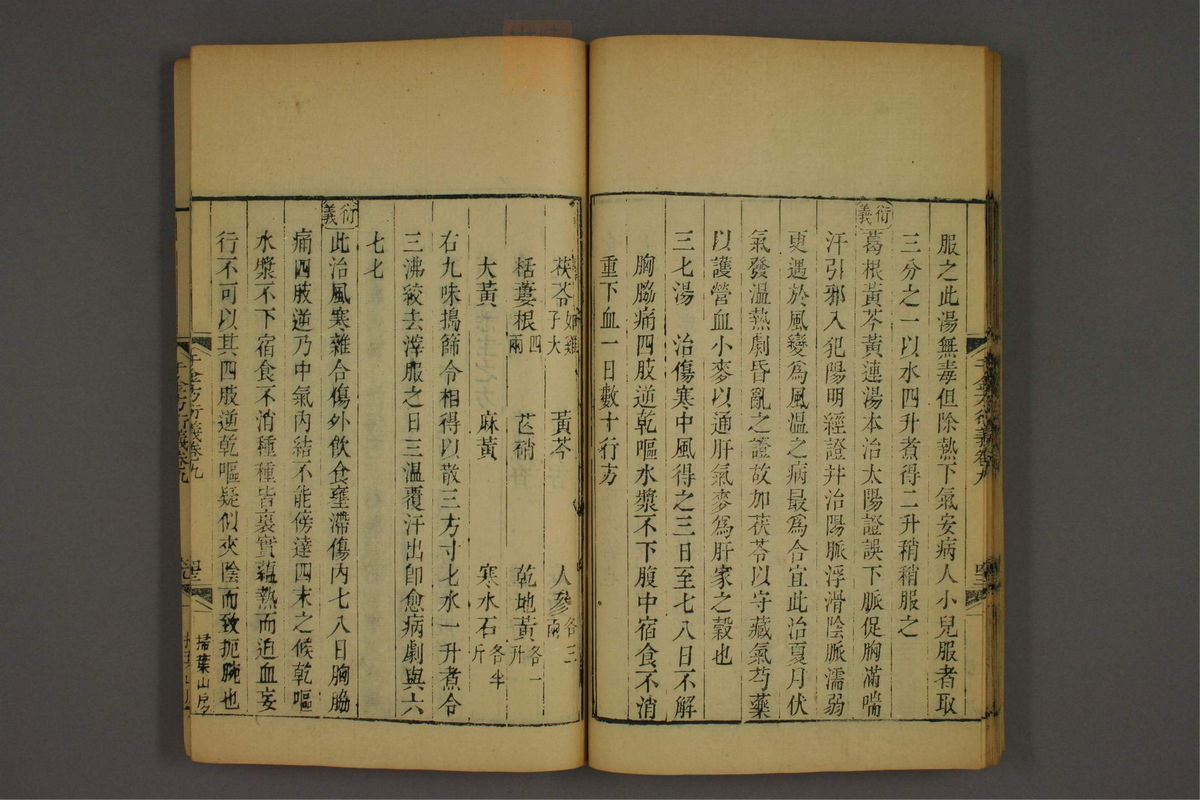 服之此湯無毒但除熱下氣安病人小兒服者取
三分之一以水四升煮得二升稍稍服之
衍義
葛根黃芩黃連湯本治太陽證誤下脈促胸滿喘
汗引邪入犯陽明經證幷治陽脈浮滑陰脈濡弱
更遇於風變爲風溫之病最爲合宜此治夏月伏
氣發溫熱劇昏亂之證故加茯苓以守藏氣芍藥
以護營血小麥以通肝氣麥爲肝家之穀也
三七湯　治傷寒中風得之三日至七八日不解
胸脇痛四肢逆乾嘔水漿不下腹中宿食不消
重下血一日數十行方
茯苓如雞子大　黃芩　人參各三兩
栝蔞根四兩　芒硝　乾地黃各一升
大黃　麻黃　寒水石各半斤
右九味搗篩令相得以散三方寸七水一升煮合
三沸絞去滓服之日三溫覆汗出卽愈病劇與六
七七
衍義
此治風寒雜合傷外飲食壅滯傷內七八日胸脇
痛四肢逆乃中氣內結不能傍達四末之候乾嘔
水漿不下宿食不消種種皆裏實蘊熱而迫血妄
行不可以其四肢逆乾嘔疑似夾陰而致扼腕也
千金方衍義卷九
掃葉山房